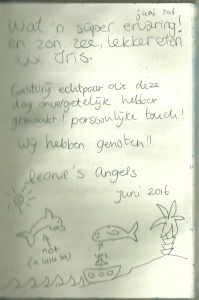 juni 2016
Wat 'n super ervaring!
en zon, zee, lekker eten
xx Iris.
Gastvrij echtpaar die deze
dag onvergetelijk hebben
gemaakt! persoonlijke touch!
Wij hebben genoten!!
Leonie's Angels
juni 2016
not